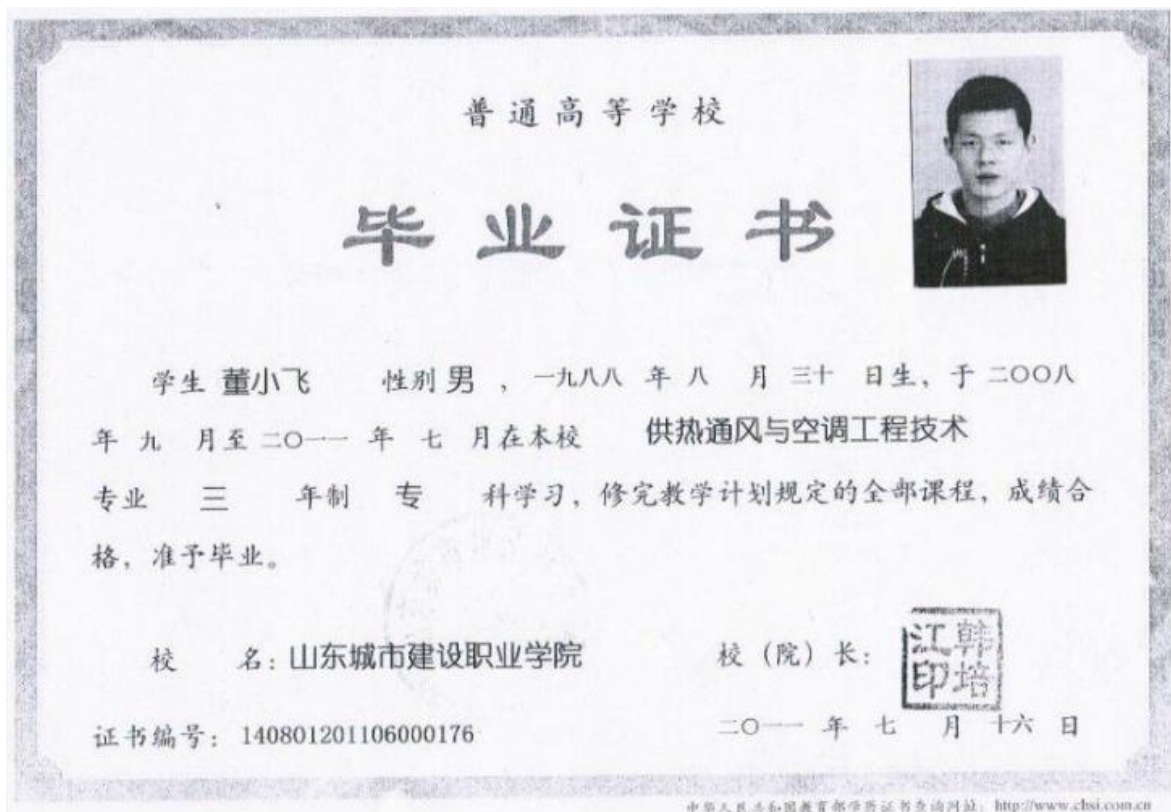 普通高等学校
毕业证书
学生 董小飞 性别 男 ，一九八八 年 八 月 三十 日生，于 二〇〇八
年 九 月至 二〇一一 年 七 月在本校 供热通风与空调工程技术
专业 三 年制 专 科学习，修完教学计划规定的全部课程，成绩合
格，准予毕业。
校 名：山东城市建设职业学院 校（院）长：
江韩
印培
证书编号：140801201106000176 二〇一一 年 七 月 十六 日
中华人民共和国教育部学历证书查询网站：http://www.chsi.com.cn